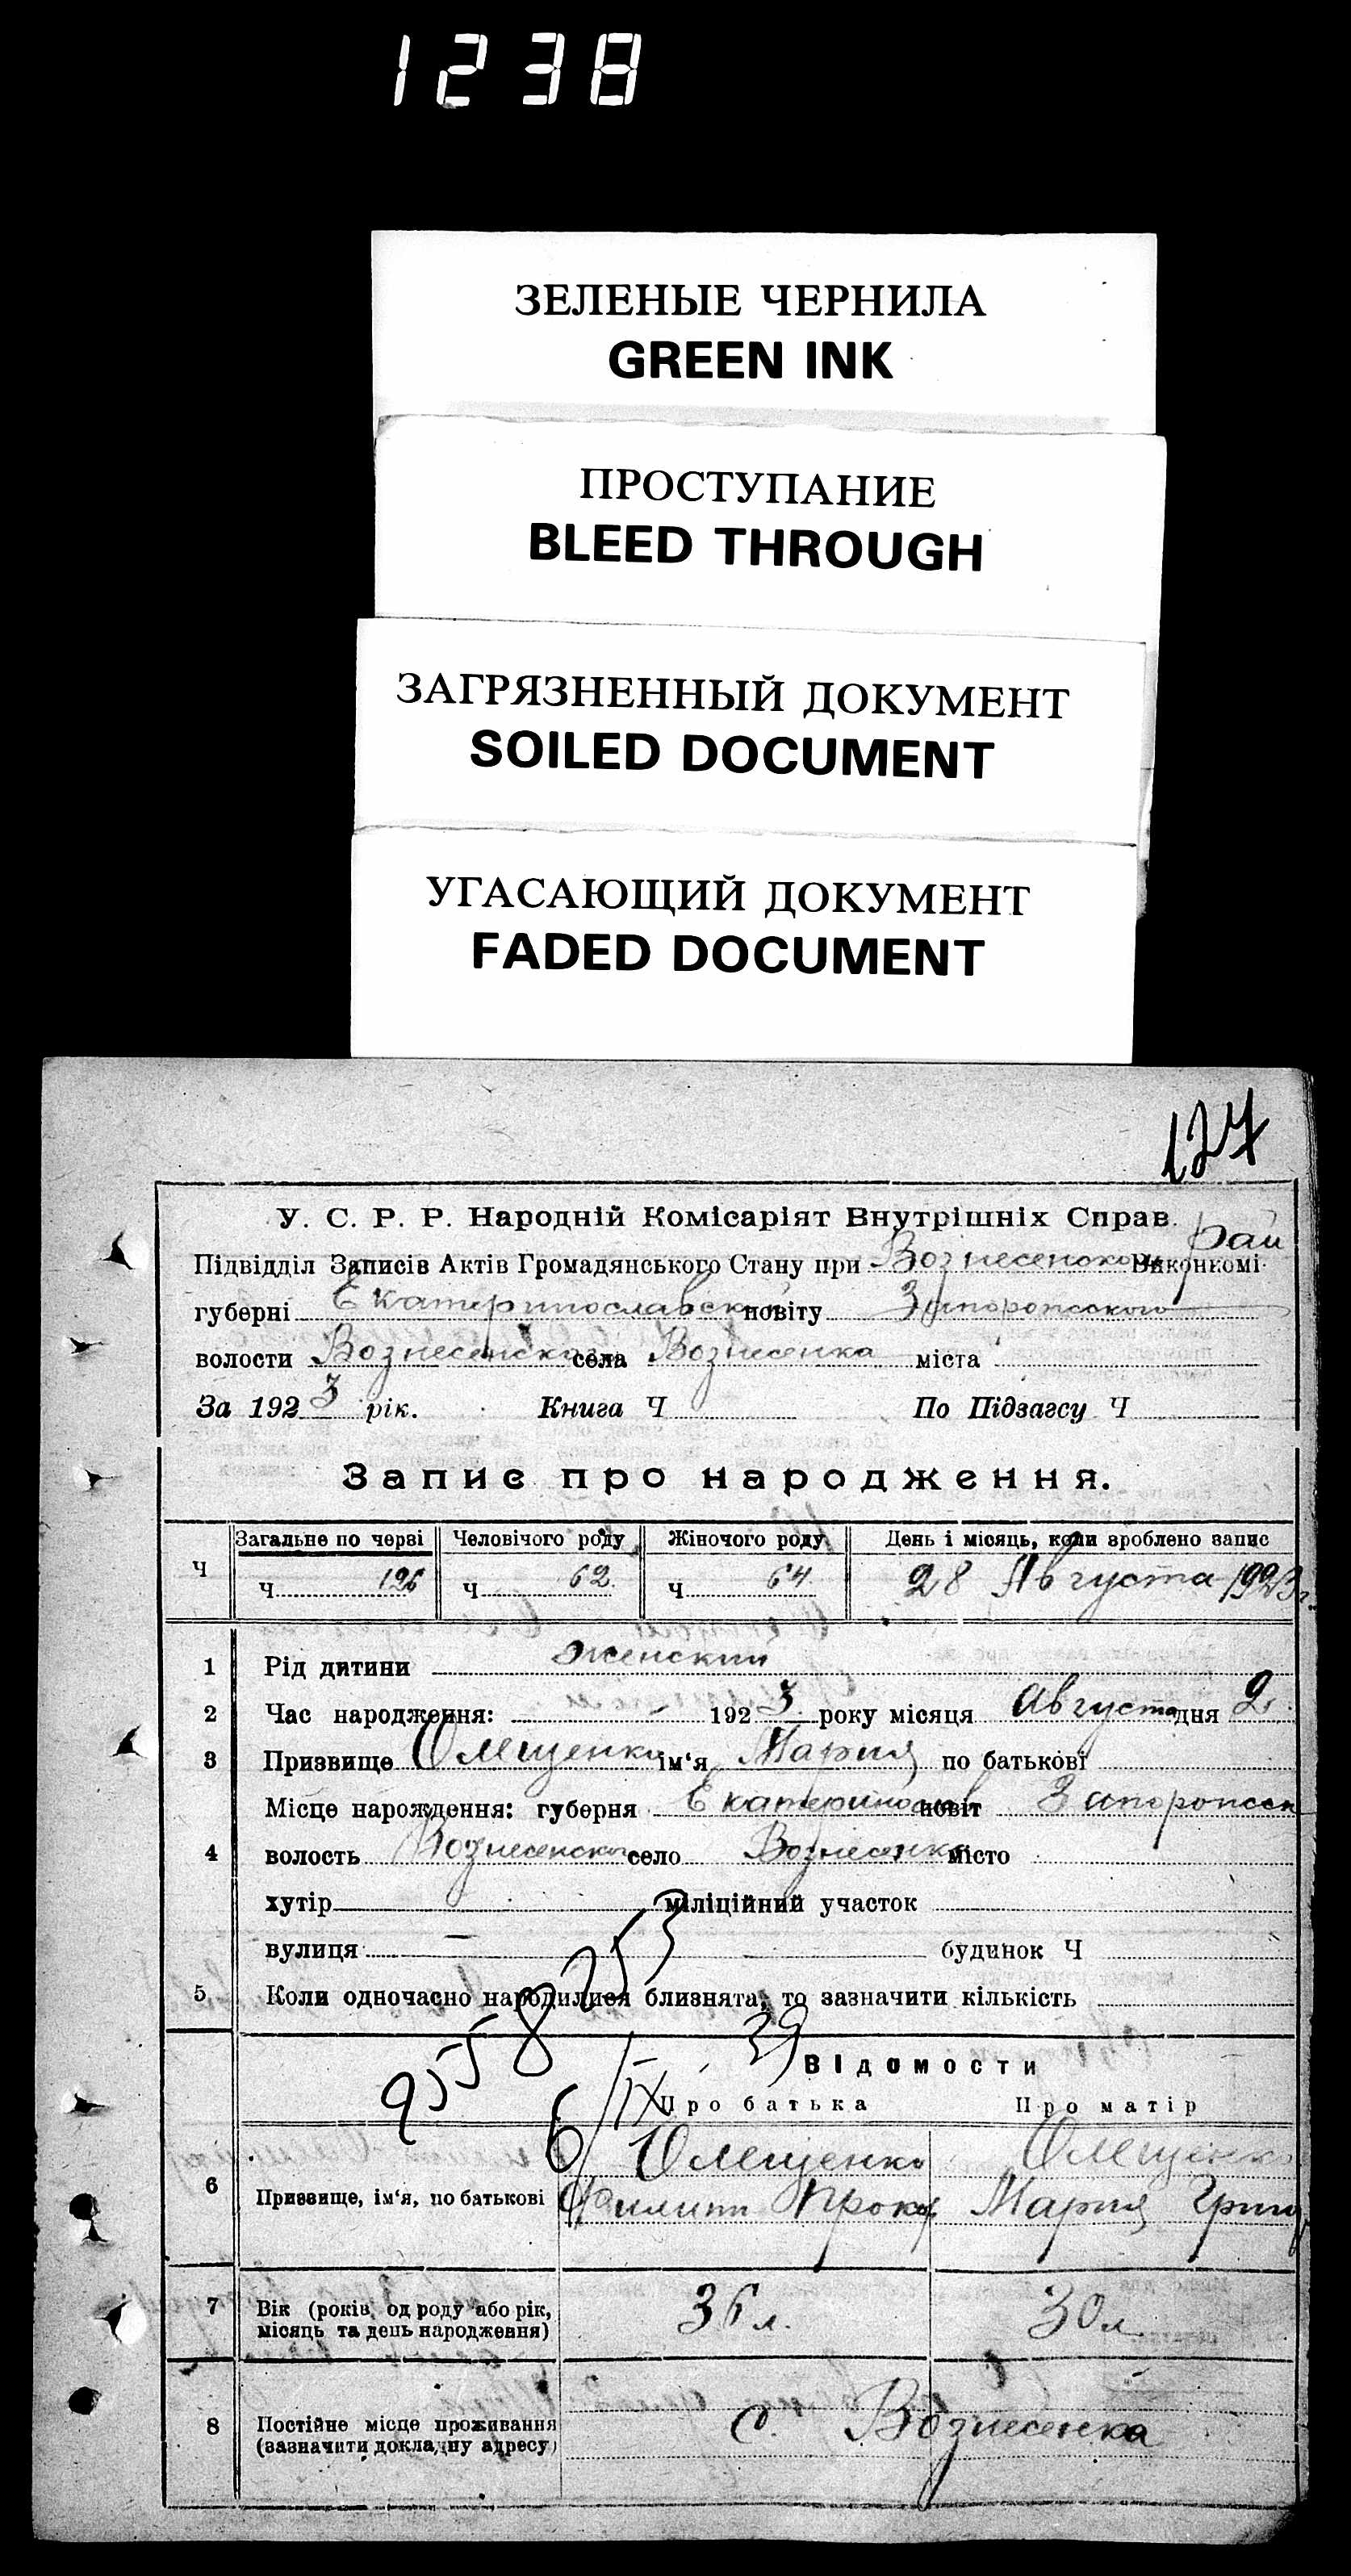 1238
ЗЕЛЕНЫЕ ЧЕРНИЛА
GREEN INK
ПРОСТУПАНИЕ
BLEED THROUGH
ЗАГРЯЗНЕННЫЙ ДОКУМЕНТ
SOILED DOCUMENT
УГАСАЮЩИЙ ДОКУМЕНТ
FADED DOCUMENT
127
У. С. Р. Р. Народній Комісаріят Внутрішніх Справ.
Підвідділ Записів Актів Громадянського Стану при Вознесенском рай Виконкомі
губерні Екатеринославской повіту Запорожского
волости Вознесенской села Вознесенка міста
За 1923 рік. Книга Ч По Підзагсу Ч
Запис про народження.
Ч Загальне по черзі Человічого роду Жіночого роду День і місяць, коли зроблено запис
Ч 126 Ч 62 Ч 64 28 Августа 1923 г.
1 Рід дитини женский
2 Час народження: 1923 року місяця Августа дня 2
3 Призвище Омещенко ім'я Мария по батькові
Місце народження: губерня Екатеринослав повіт Запорожск
4 волость Вознесенског село Вознесенка місто
хутір міліційний участок
вулиця — будинок Ч
5 Коли одночасно народилися близнята, то зазначити кількість
9558253
39
6/IX
Відомости
Про батька Про матір
6 Призвище, ім'я, по батькові Омещенко Филипп Прокоф Омещенко Мария Григ
7 Вік (років, од роду або рік, місяць та день народження) 36 л. 30 л
8 Постійне місце проживання (зазначити докладну адресу) с. Вознесенка